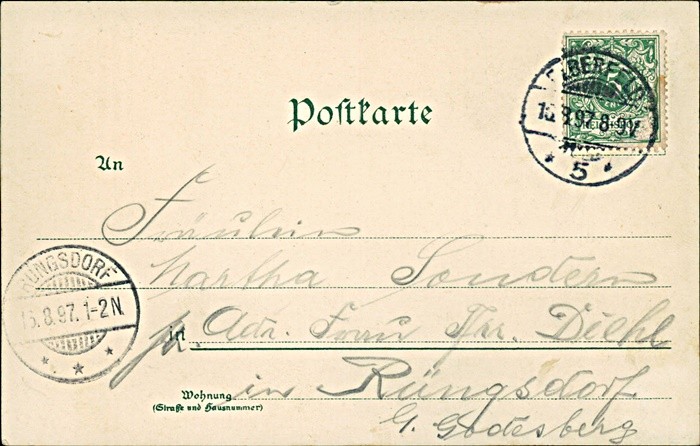 Postkarte
ELBERFELD
15.8.97.8-9V.
* 5 *
An
Fräulein
Martha Sondern
in
pr. Adr. Frau Thr. Diehl
in Rüngsdorf
Wohnung
(Straße und Hausnummer)
b. Godesberg
RÜNGSDORF
15.8.97. 1-2N.